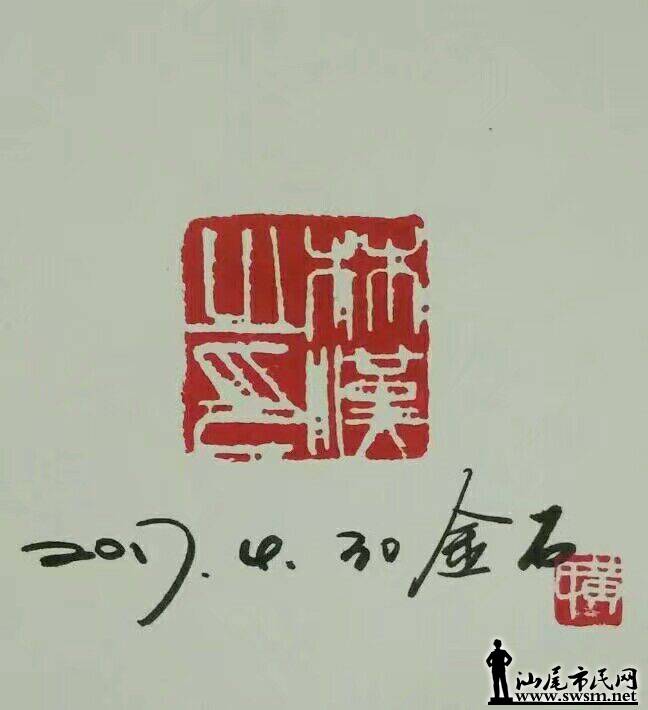 林漢
之印
2017.4.30 金石
汕尾市民网
www.swsm.net